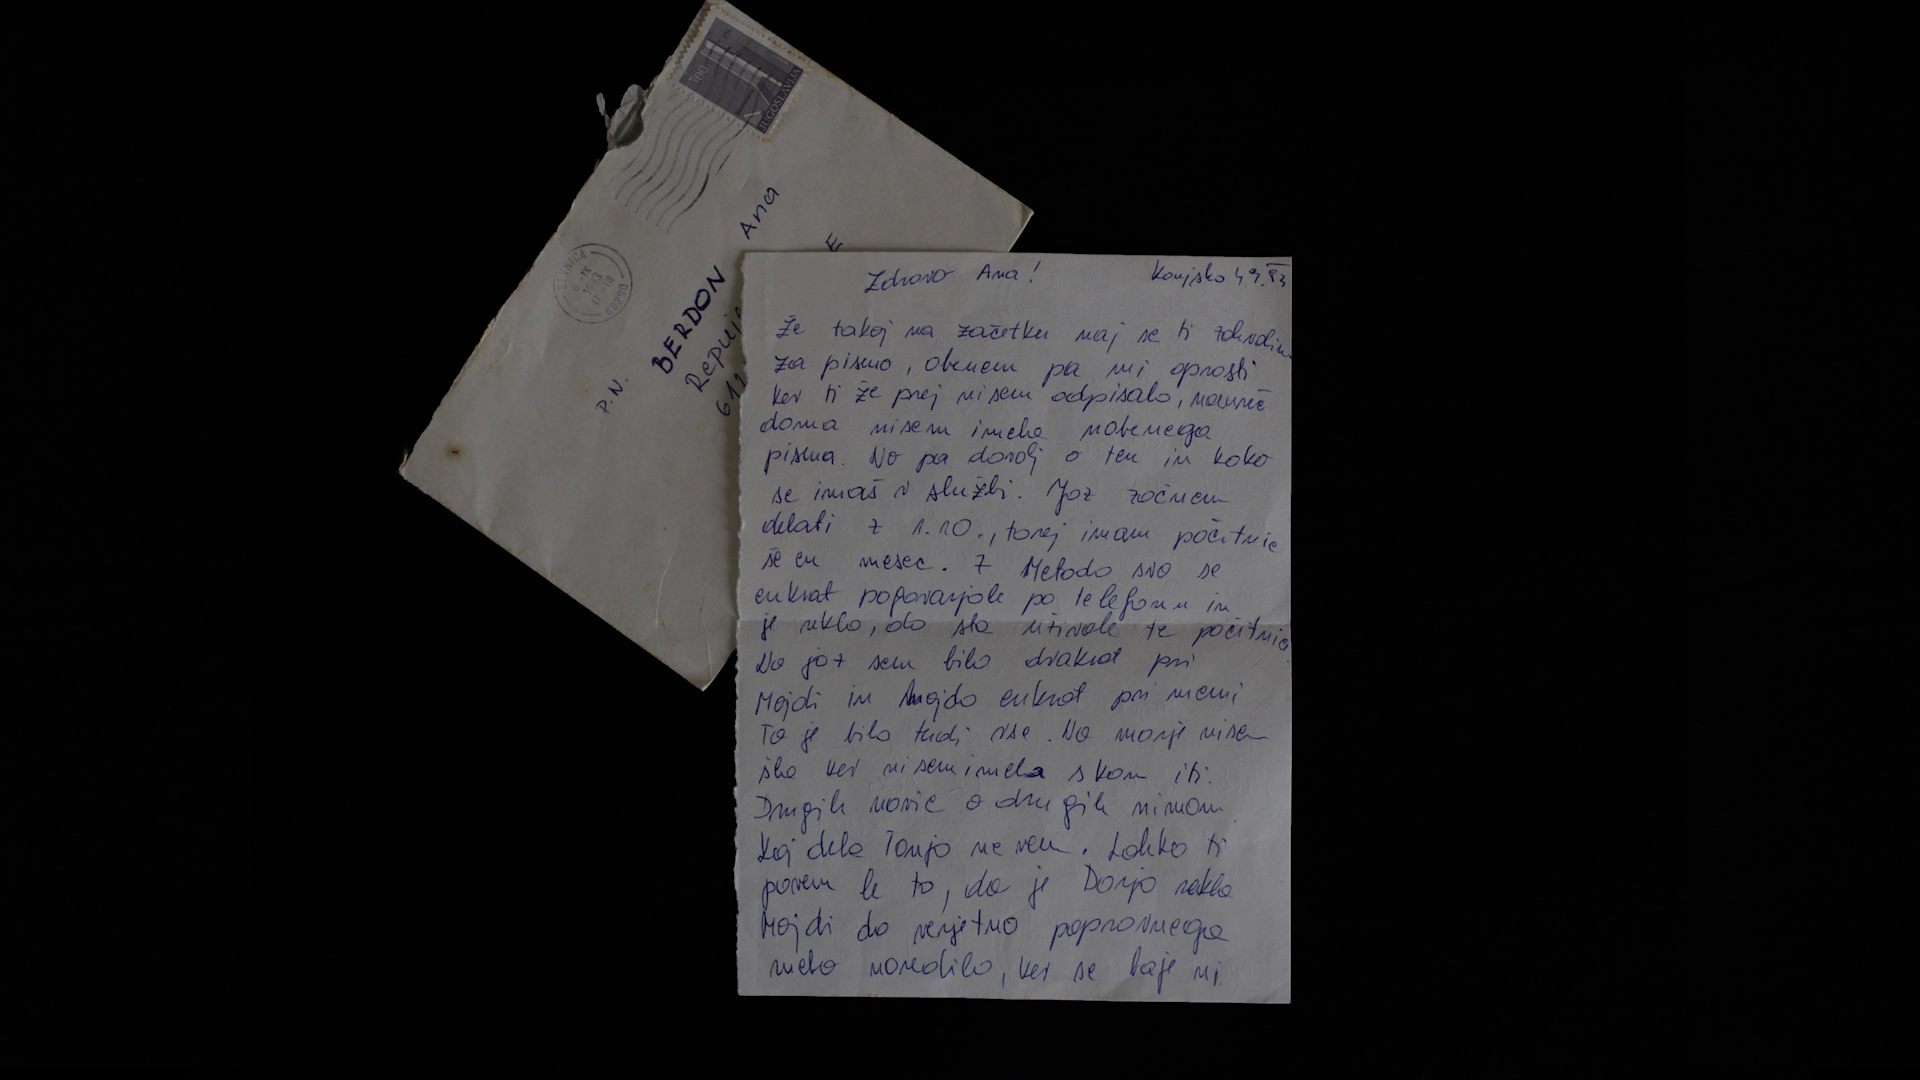 JUGOSLAVIJA
1983
P. N.
BERDON Ana
Zdravo Ana! Konjsko 4.9.83
Že takoj na začetku naj se ti zahvalim
za pismo, obenem pa mi oprosti
ker ti že prej nisem odpisala, namreč
doma nisem imela nobenega
pisma. No pa dovolj o tem in kako
se imaš v službi. Jaz začnem
delati z 1.10., torej imam počitnic
še en mesec. Z Metodo sva se
enkrat pogovarjale po telefonu in
je rekla, da sta uživale te počitnice.
No jaz sem bila dvakrat pri
Majdi in Majda enkrat pri meni
To je bilo tudi vse. Na morje nisem
šla ker nisem imela s kom iti.
Drugih novic o drugih nimam.
Kaj dela Tanja ne vem. Lahko ti
povem le to, da je Darja rekla
Majdi da verjetno popravnega
neba naredila, ker se baje ni